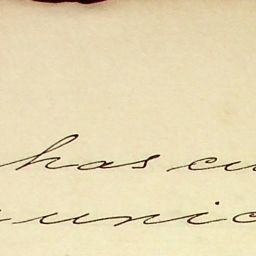 has cu
unic